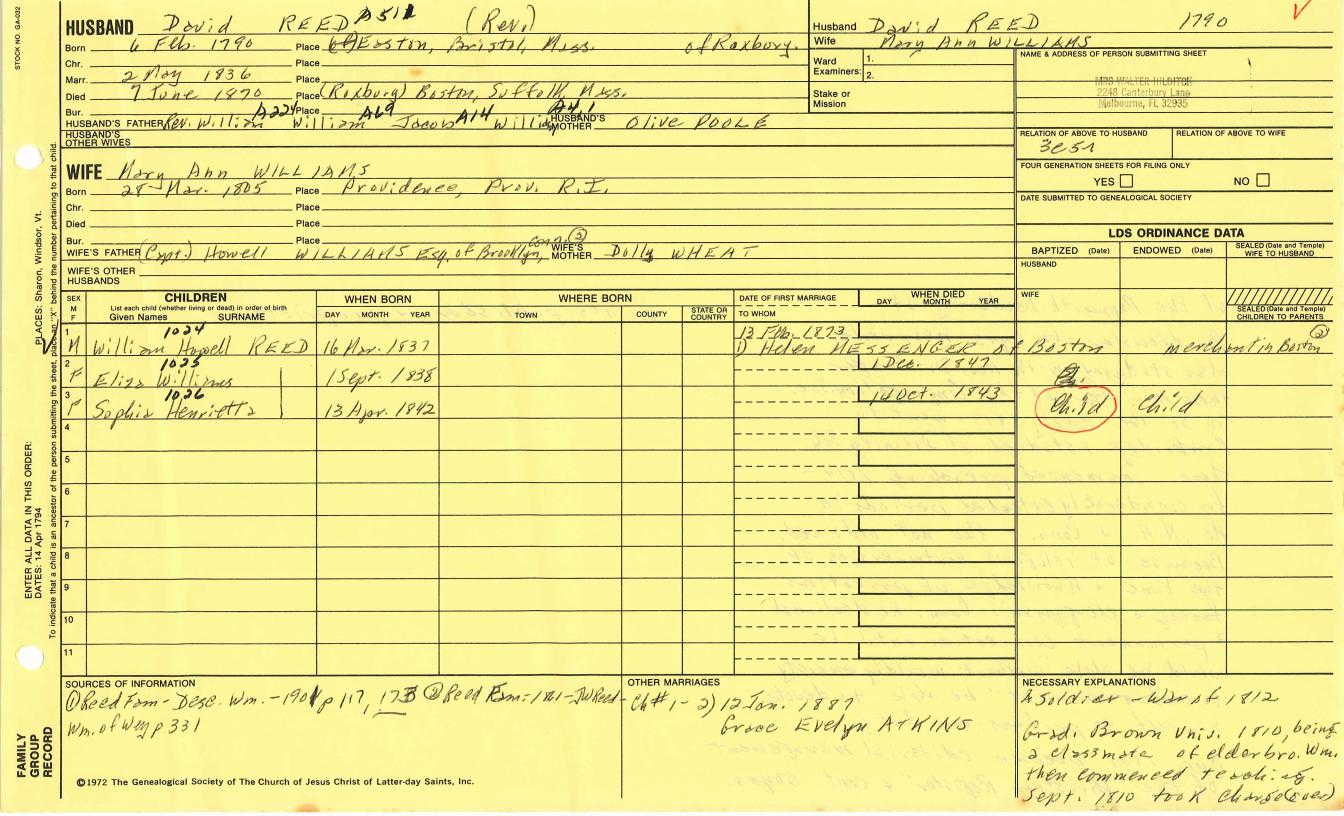 STOCK NO. GA-032
HUSBAND David REED A511 (Rev.)
Born 6 Feb. 1790 Place Easton, Bristol, Mass. of Roxbury.
Chr. Place
Marr. 2 May 1836 Place
Died 7 June 1870 Place (Roxbury) Boston, Suffolk, Mass.
Bur. Place
HUSBAND'S FATHER Rev. William A224 William A69 Jacob A14 William A4,1 HUSBAND'S MOTHER Olive POOLE
HUSBAND'S OTHER WIVES
WIFE Mary Ann WILLIAMS
Born 28 Mar. 1805 Place Providence, Prov. R.I.
Chr. Place
Died Place
Bur. Place
WIFE'S FATHER (Capt.) Howell WILLIAMS Esq. of Brooklyn, Conn. (2) WIFE'S MOTHER Dolly WHEAT
WIFE'S OTHER HUSBANDS
Husband David REED 1790
Wife Mary Ann WILLIAMS
Ward Examiners: 1. 2.
Stake or Mission
NAME & ADDRESS OF PERSON SUBMITTING SHEET
MRS WALTER HILDITCH
2248 Canterbury Lane
Melbourne, FL 32935
RELATION OF ABOVE TO HUSBAND RELATION OF ABOVE TO WIFE
3C5R
FOUR GENERATION SHEETS FOR FILING ONLY
YES NO
DATE SUBMITTED TO GENEALOGICAL SOCIETY
LDS ORDINANCE DATA
BAPTIZED (Date) ENDOWED (Date) SEALED (Date and Temple) WIFE TO HUSBAND
HUSBAND
WIFE
SEALED (Date and Temple) CHILDREN TO PARENTS
SEX M F CHILDREN WHEN BORN WHERE BORN DATE OF FIRST MARRIAGE WHEN DIED
List each child (whether living or dead) in order of birth
Given Names SURNAME DAY MONTH YEAR TOWN COUNTY STATE OR COUNTRY TO WHOM DAY MONTH YEAR
1 1024 13 Feb. 1873
M William Howell REED 16 Mar. 1837 1) Helen MESSENGER of Boston merchant in Boston (2)
2 1025 1 Dec. 1847
F Eliza Williams 1 Sept. 1838
3 1026 14 Oct. 1843
F Sophia Henrietta 13 Apr. 1842 Child Child
4
5
6
7
8
9
10
11
PLACES: Sharon, Windsor, Vt.
ENTER ALL DATA IN THIS ORDER:
DATES: 14 Apr 1794
To indicate that a child is an ancestor of the person submitting the sheet, place an "X" behind the number pertaining to that child.
FAMILY GROUP RECORD
SOURCES OF INFORMATION
(1) Reed Fam - Desc. Wm. - 1901 p 117, 173 (2) Reed Fam: 1861 - JW Reed -
Wm. of Wey p 331
OTHER MARRIAGES
Ch #1 - 2) 12 Jan. 1887
Grace Evelyn ATKINS
NECESSARY EXPLANATIONS
A Soldier - War of 1812
Grad. Brown Univ. 1810, being
a classmate of elder bro. Wm.
then commenced teaching.
Sept. 1810 took charge (over)
©1972 The Genealogical Society of The Church of Jesus Christ of Latter-day Saints, Inc.